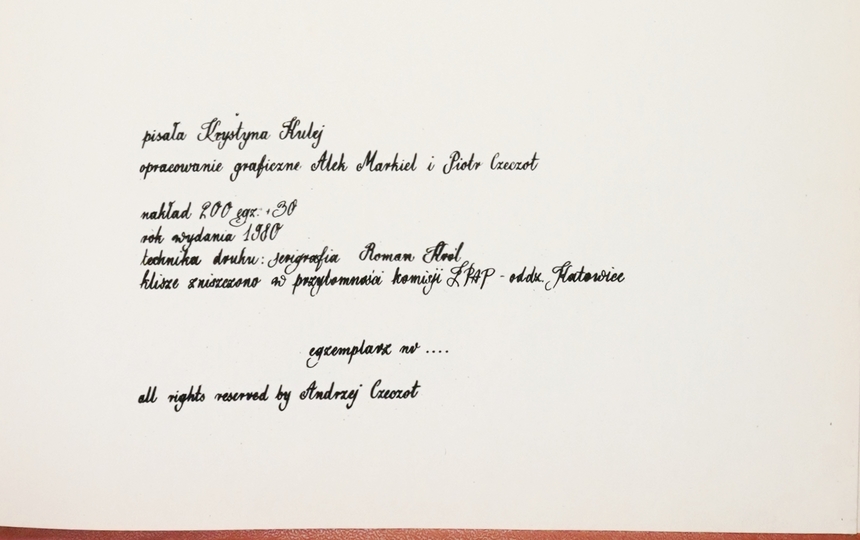 pisała Krystyna Kulej
opracowanie graficzne Alek Markiel i Piotr Czeczot
nakład 200 egz. +30
rok wydania 1980
technika druku: serigrafia Roman Król
klisze zniszczono w przytomności komisji ZPAP - oddz. Katowice
egzemplarz nr ....
all rights reserved by Andrzej Czeczot